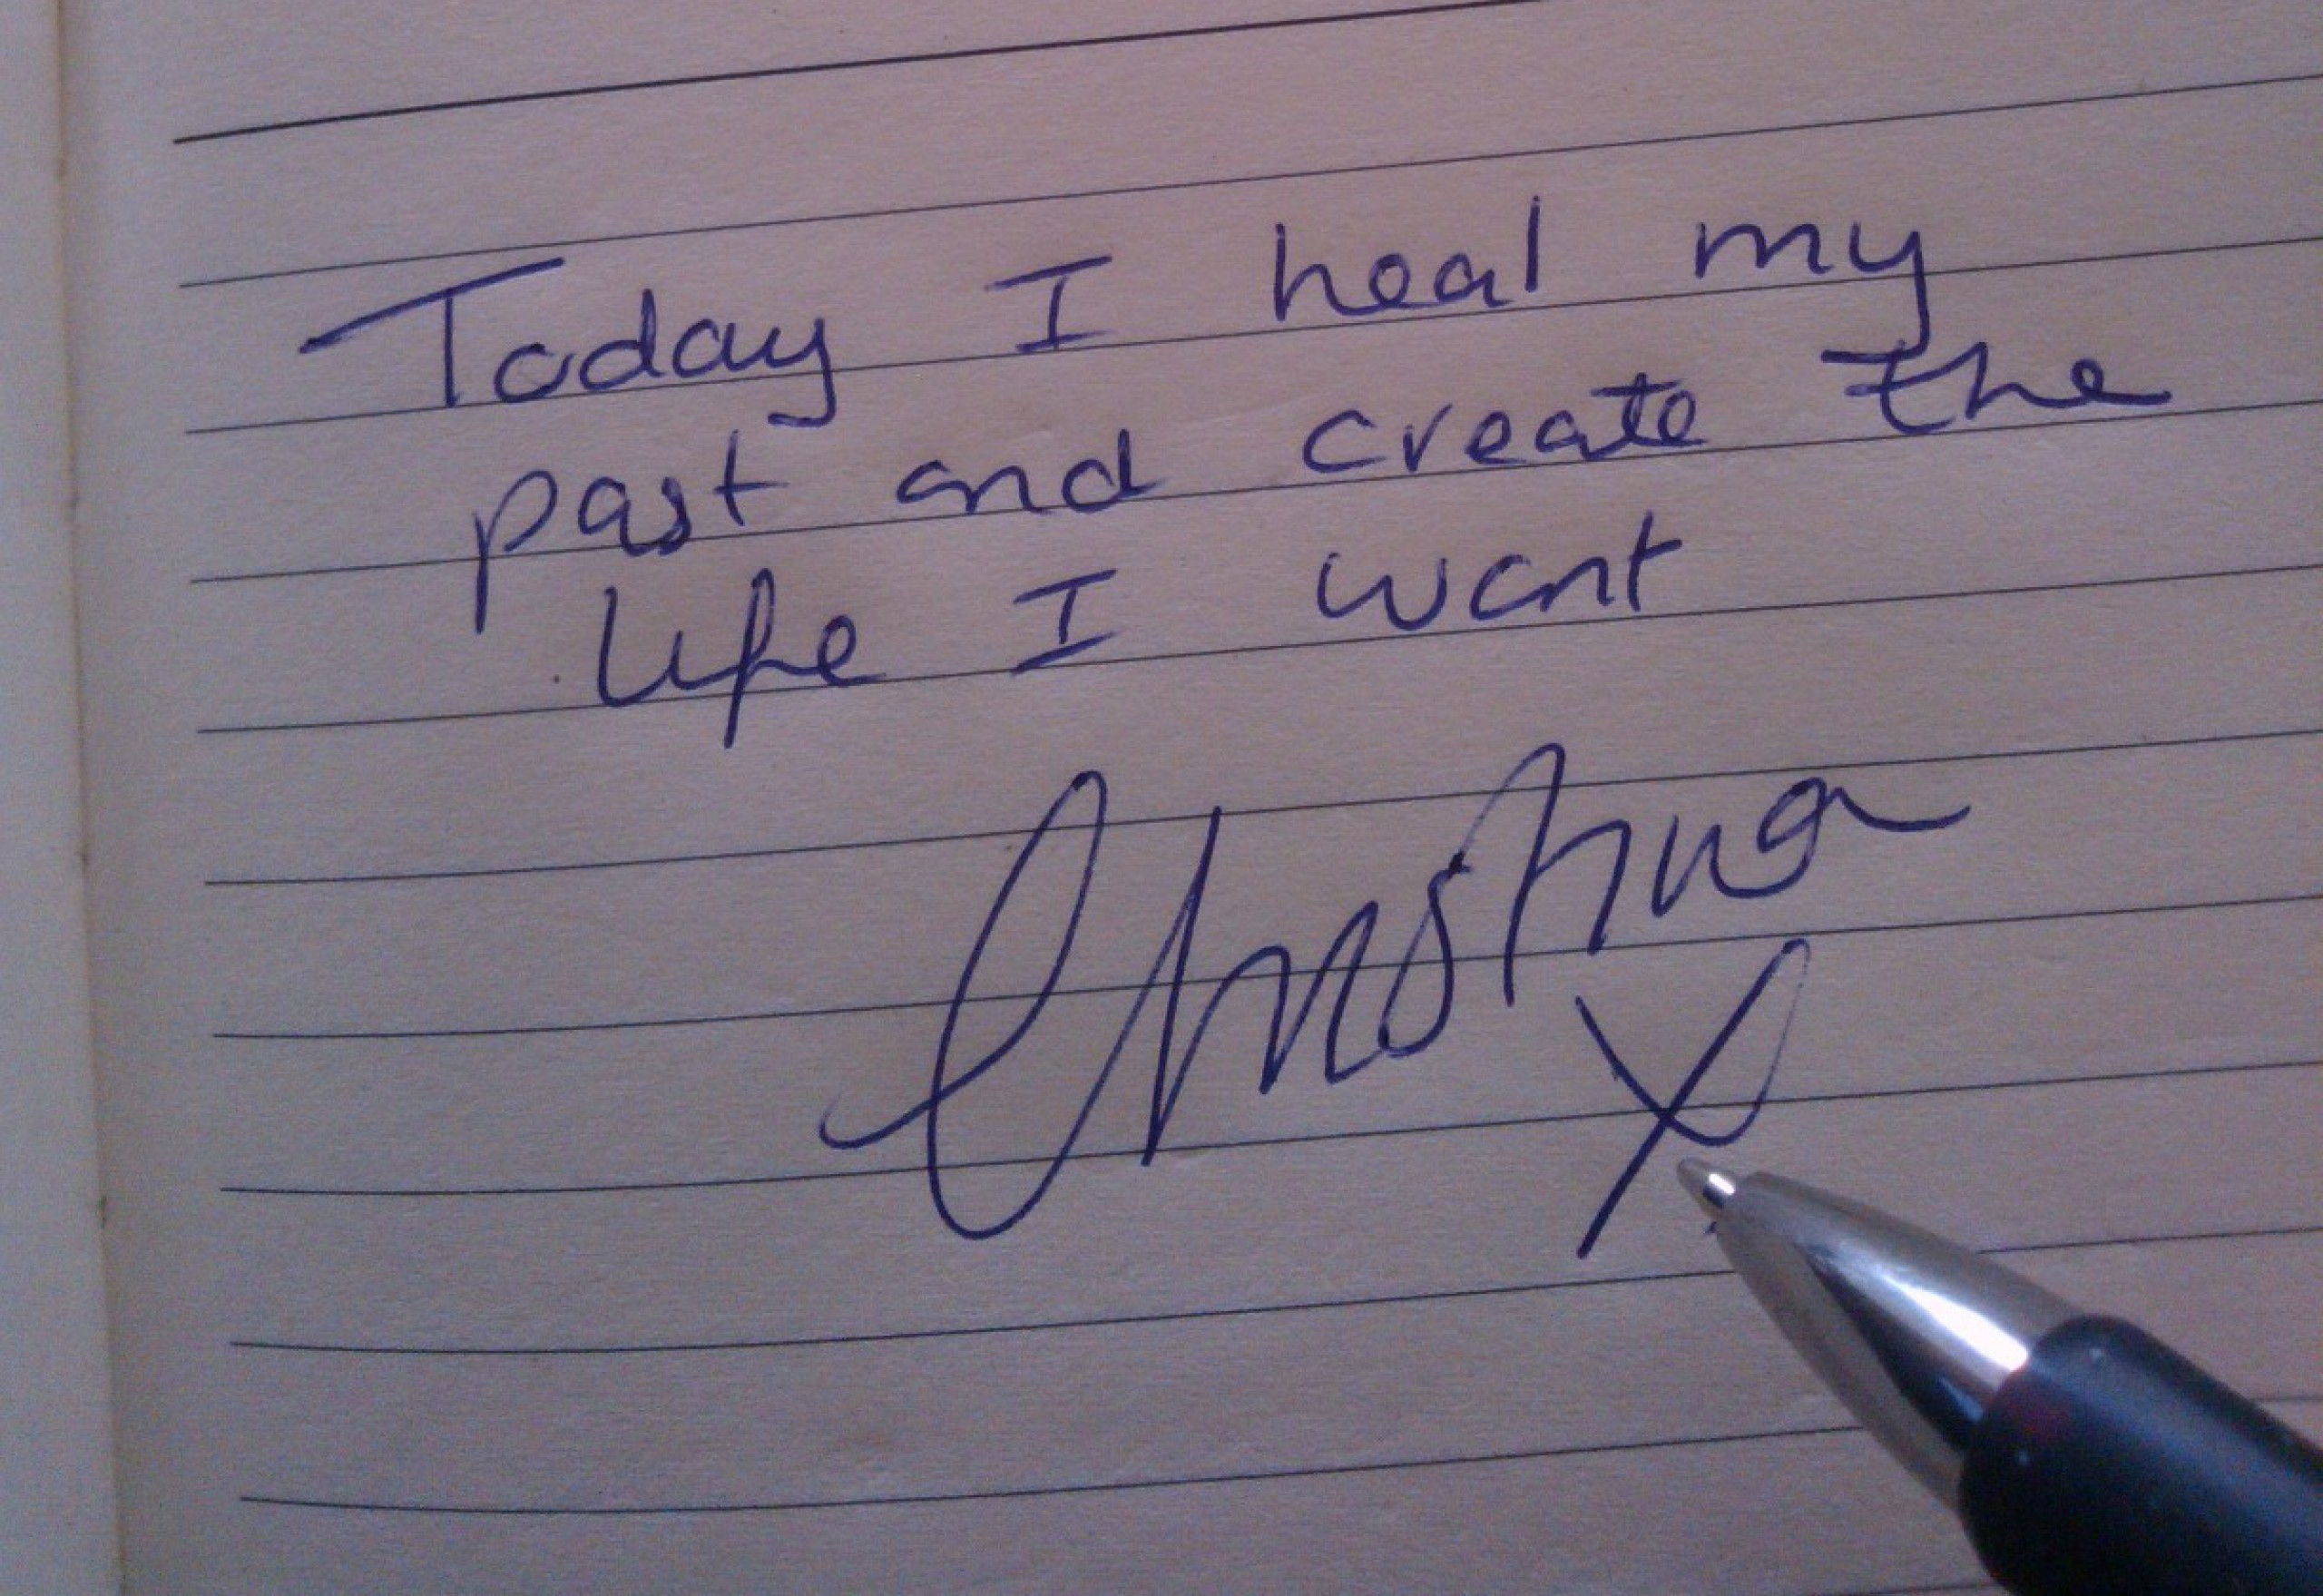 Today I heal my
past and create the
life I want
X